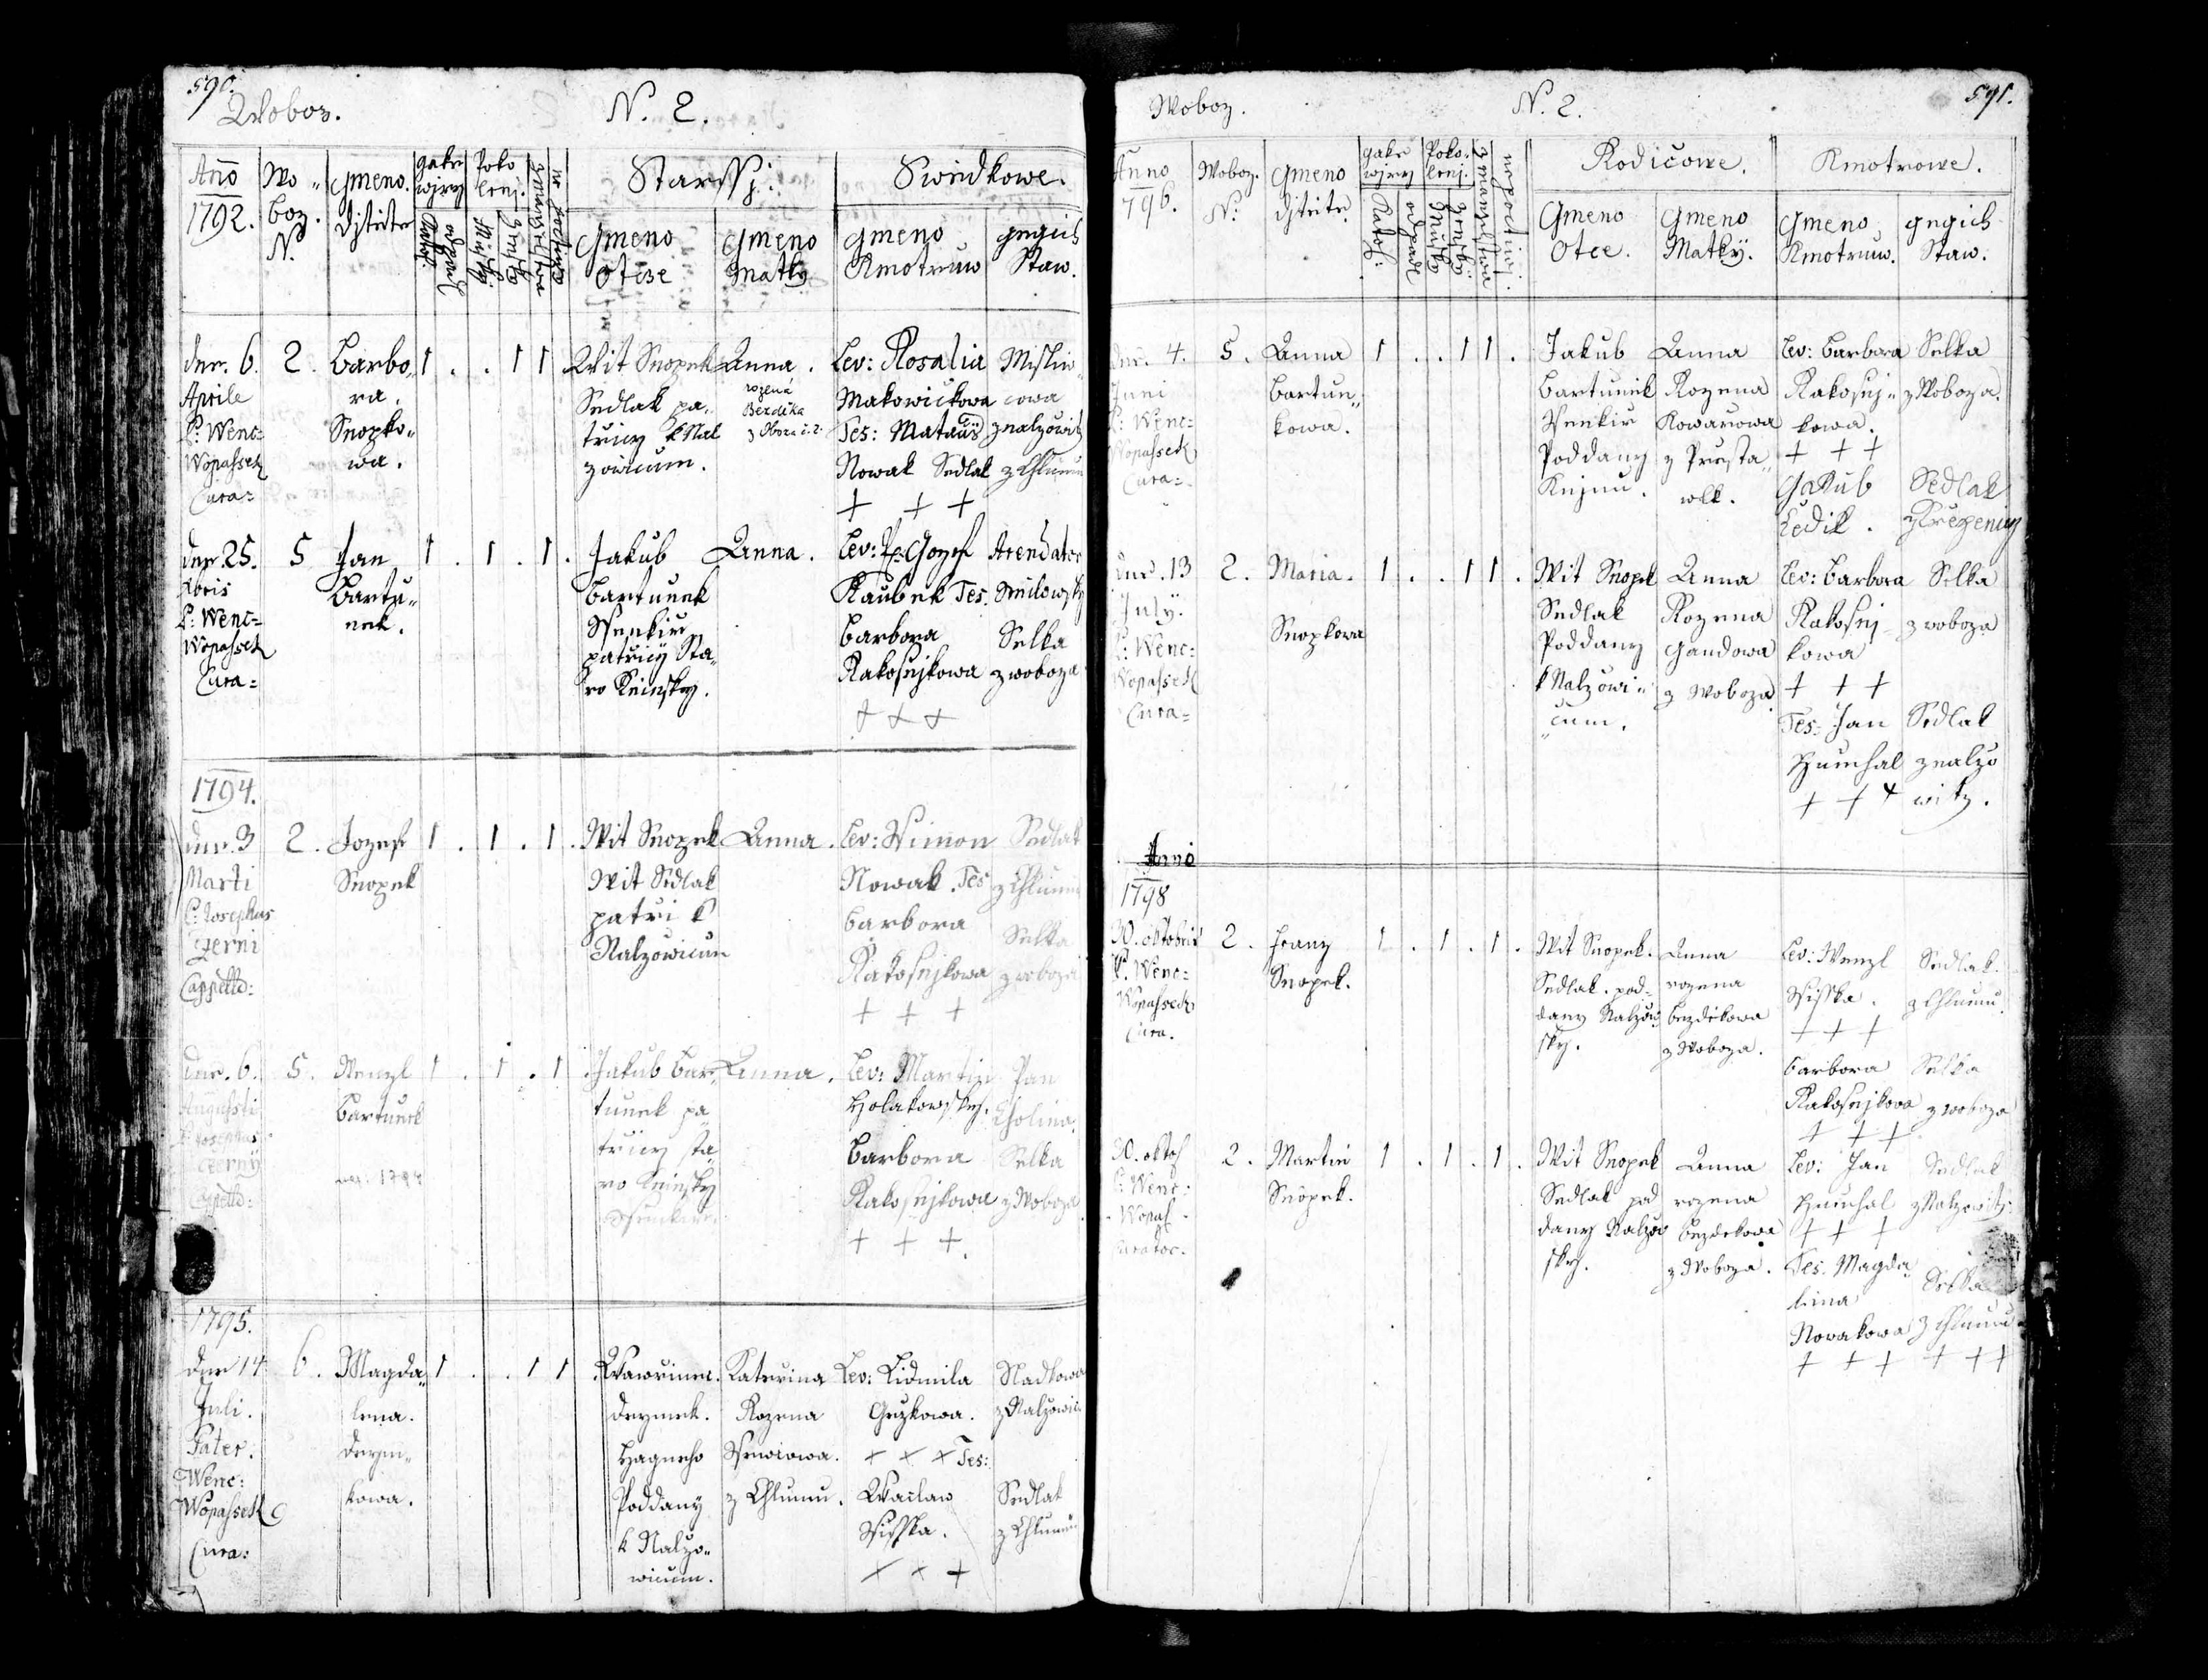 590.
Woboz.
N. 2.
Anno
1792.
Wo-
boz.
N.
Gmeno
Djtiete
gake
wjry
Katol:
Poko
lenj.
Starssj.
Swiedkowe.
Gmeno
Otcze
Gmeno
Matky
Gmeno
Kmotruw
gegich
Staw.
dne. 6.
Aprile
P: Wenc=
Wopassek
Cura=
2.
Barbo-
ra.
Snopko-
wa.
1 . . 1 1
Wit Snopek
Sedlak pa-
tricy k Nal
zowicum.
Anna.
rozená
Bezděka
z Oboza č. 2.
Lev: Rosalia
Makowickowa
Tes: Mataus
Nowak Sedlak
+ + +
Misliw-
cowa
z nalzowic
z Chlumu
dne 25.
P: Wenc=
Wopassek
Cura=
5
Jan
Bartu-
nek.
1 . 1 . 1 .
Jakub
Bartunek
Ssenkir
patricy Sta-
ro Kninsky.
Anna.
Lev: P. Gozef
Kaubek Tes.
Barbora
Rakosejkowa
+ + +
Arendator
Smilowsky
Selka
z woboza
1794.
dne. 3
Marti
P: Josephus
Zerni
Cappella:
2.
Jozef
Snopek
1 . 1 . 1 .
Wit Snopek
Wit Sedlak
patri k
Nalzowicum
Anna.
Lev: Simon
Nowak. Tes
Barbora
Rakosejkowa
+ + +
Sedlak
z Chlumu
Selka
z woboza
dne. 6.
Augusti
P: Josephus
Zerny
Cappella:
5.
Wenzl
Bartunek
1794
1 . 1 . 1
Jakub Bar-
tunek pa
tricy sta-
ro Kninsky
Anna.
Lev: Martin
Holakowsky.
Barbora
Rakosejkowa
+ + +
Pan
Selka
z Woboza
1795.
dne 14
Juli.
Pater.
Wenc:
Wopassek
Cura:
6.
Magda-
lena.
Drym-
kowa.
1 . . 1 1
Wawrinec.
Drymek.
Hagneho
Poddany
k Nalzo-
wicum.
Katerina
Rozena
z Chlumu.
Lev: Lidmila
Gezkowa.
+ + + Tes:
Waclaw
Sisska.
+ + +
z Nalzowic
Sedlak
z Chlumu
591.
Woboz.
N. 2.
Anno
1796.
Woboz.
N:
Gmeno
Djtěte
gake
wjry
Katol:
Poko-
lenj.
Rodičowe.
Kmotrowe.
Gmeno
Otce.
Gmeno
Matky.
Gmeno
Kmotruw.
gegich
Staw.
dne. 4.
Juni
P: Wenc=
Wopassek
Cura=
5.
Anna
Bartun-
kowa.
1 . . 1 1 .
Jakub
Bartunek
Ssenkir
Poddany
Knjnu.
Anna
Rozena
Kowarowa
z Presta-
wlk.
Lev: Barbora
Rakosej-
kowa.
+ + +
Gakub
Ledik.
Selka
z Woboza.
Sedlak
z Krepenic
dne. 13
July.
P: Wenc:
Wopassek
Cura=
2.
Maria.
Snopkowa
1 . . 1 1 .
Wit Snopek
Sedlak
Poddany
k Nalzowi-
cum.
Anna
Rozena
Gandowa
z Woboza
Lev: Barbora
Rakosej-
kowa
+ + +
Tes: Jan
Humhal
+ + +
Selka
z woboza
Sedlak
z nalzo
witz.
Anno
1798
30. oktobris
P. Wenc=
Wopassek
Cura.
2.
Franz
Snopek.
1 . 1 . 1 .
Wit Snopek.
Sedlak. pod=
dany Nalzow
sky.
Anna
rozena
bezdekowa
z Woboza.
Lev: Wenzl
Sisska.
+ + +
Barbora
Rakosejkova
+ + +
Sedlak.
z Chlumu.
Selka
z woboza
30. oktob
P: Wenc:
Wopas
Curator.
2.
Martin
Snopek.
1 . 1 . 1 .
Wit Snopek
Sedlak pod
dany Nalzow
sky.
Anna
rozena
bezdekowa
z Woboza.
Lev: Jan
Humhal
+ + +
Tes. Magda-
lena
Novakowa
+ + +
Sedlak
z Nalzowitz.
Selka
z Chlumu
+ + +